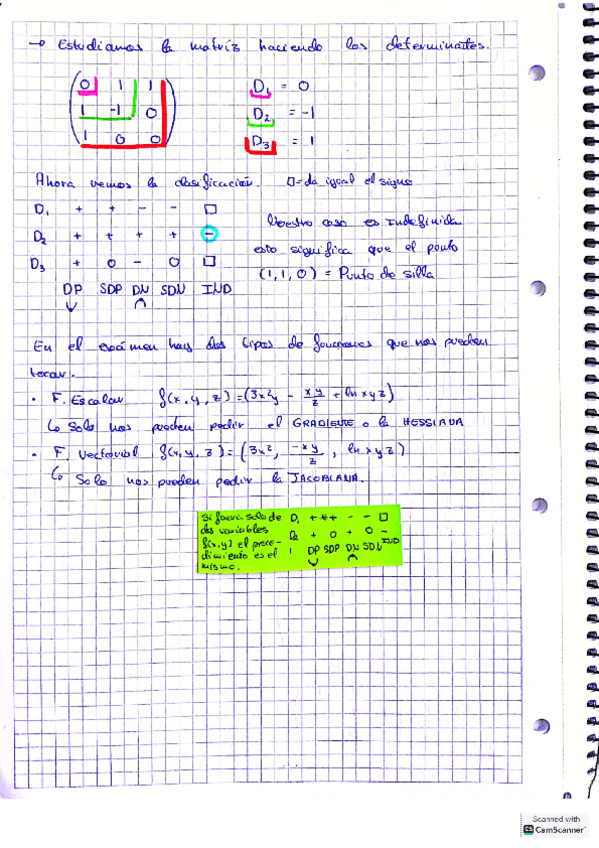 → Estudiamos la matriz haciendo los determinantes.
0 1 1 D₁ = 0
1 -1 0 D₂ = -1
1 0 0 D₃ = 1
Ahora vemos la clasificación. □=da igual el signo
D₁ + + - - □
D₂ + + + + -
D₃ + 0 - 0 □
DP SDP DN SDN IND
Nuestro caso es Indefinida
esto significa que el punto
(1,1,0) = Punto de silla
En el exámen hay dos tipos de funciones que nos pueden
tocar.
• F. Escalar f(x,y,z)=(3x²y - xy/z + ln xyz)
↳ Solo nos pueden pedir el GRADIENTE o la HESSIANA
• F. Vectorial f(x,y,z)=(3x², -xy/z, ln xyz)
↳ Solo nos pueden pedir la JACOBIANA.
Si fuera solo de D₁ + + - - □
dos variables D₂ + 0 + 0 -
f(x,y) el proce-
dimiento es el DP SDP DN SDN IND
mismo.
Scanned with
CS CamScanner